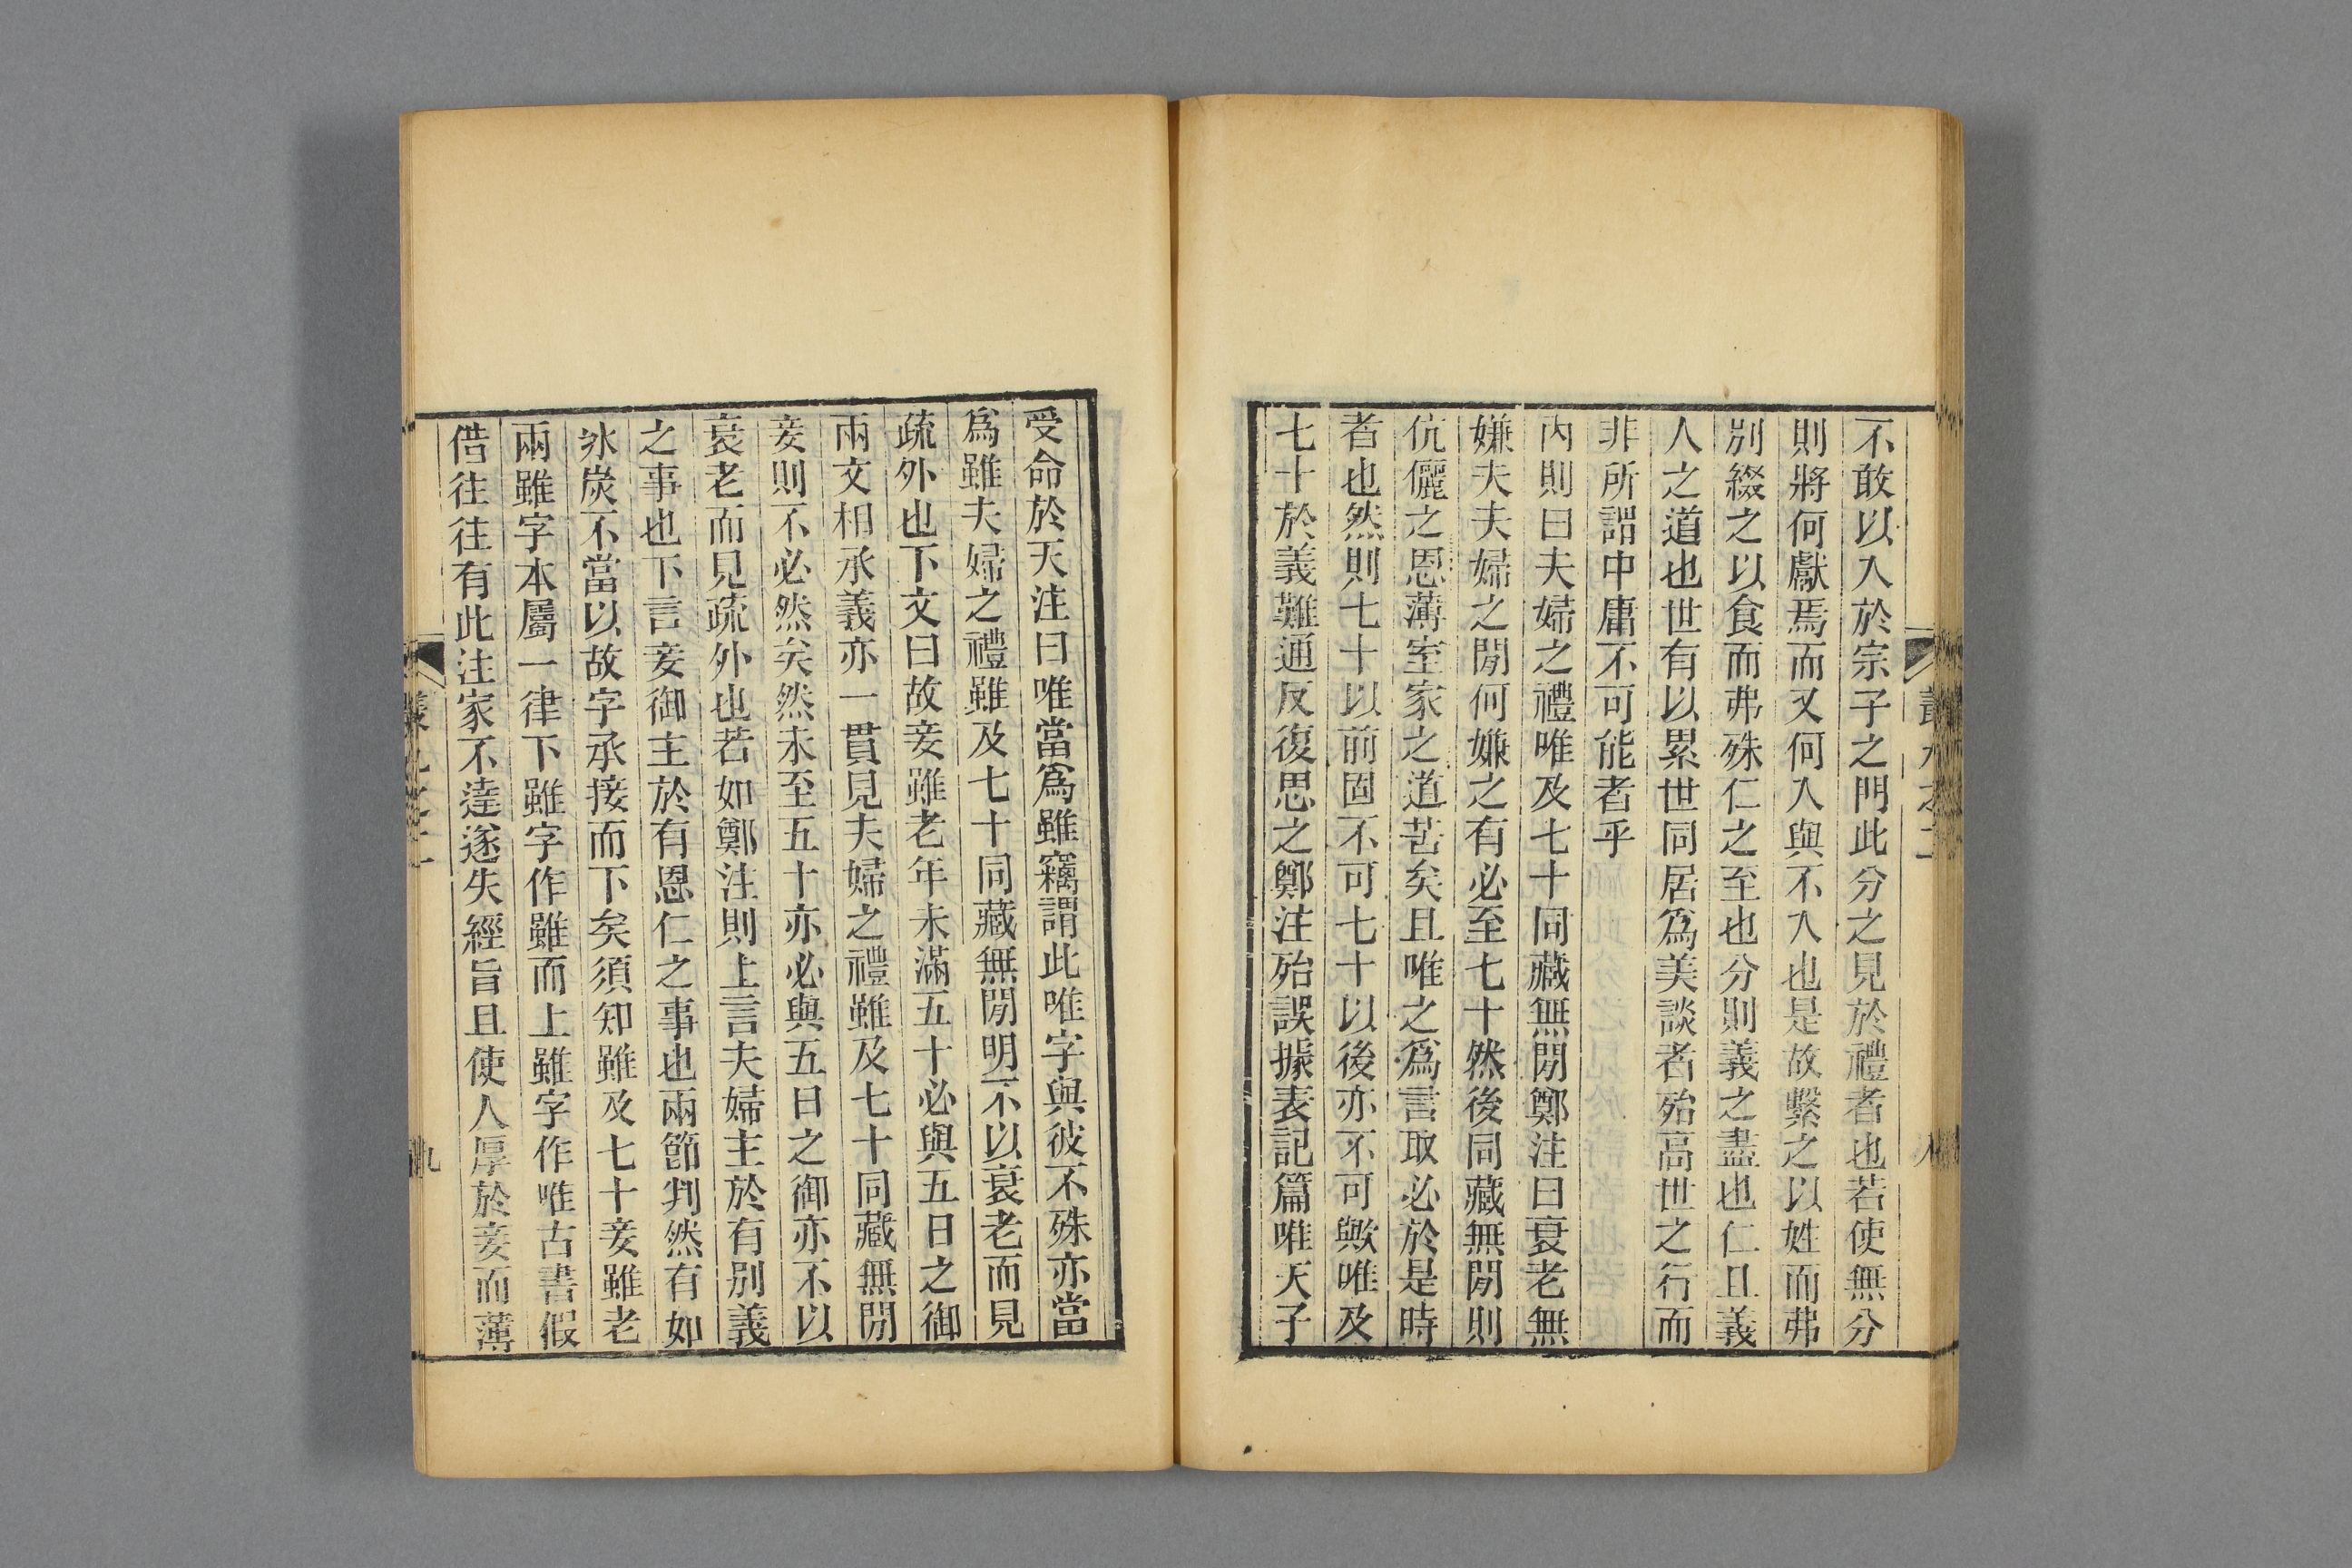 不敢以入於宗子之門此分之見於禮者也若使無分
則將何獻焉而又何入與不入也是故繫之以姓而弗
別綴之以食而弗殊仁之至也分則義之盡也仁且義
人之道也世有以累世同居爲美談者殆高世之行而
非所謂中庸不可能者乎
內則曰夫婦之禮唯及七十同藏無閒鄭注曰衰老無
嫌夫夫婦之閒何嫌之有必至七十然後同藏無閒則
伉儷之恩薄室家之道苦矣且唯之爲言取必於是時
者也然則七十以前固不可七十以後亦不可歟唯及
七十於義難通反復思之鄭注殆誤據表記篇唯天子
受命於天注曰唯當爲雖竊謂此唯字與彼不殊亦當
爲雖夫婦之禮雖及七十同藏無閒明不以衰老而見
疏外也下文曰故妾雖老年未滿五十必與五日之御
兩文相承義亦一貫見夫婦之禮雖及七十同藏無閒
妾則不必然矣然未至五十亦必與五日之御亦不以
衰老而見疏外也若如鄭注則上言夫婦主於有別義
之事也下言妾御主於有恩仁之事也兩節判然有如
氷炭不當以故字承接而下矣須知雖及七十妾雖老
兩雖字本屬一律下雖字作雖而上雖字作唯古書假
借往往有此注家不達遂失經旨且使人厚於妾而薄
九